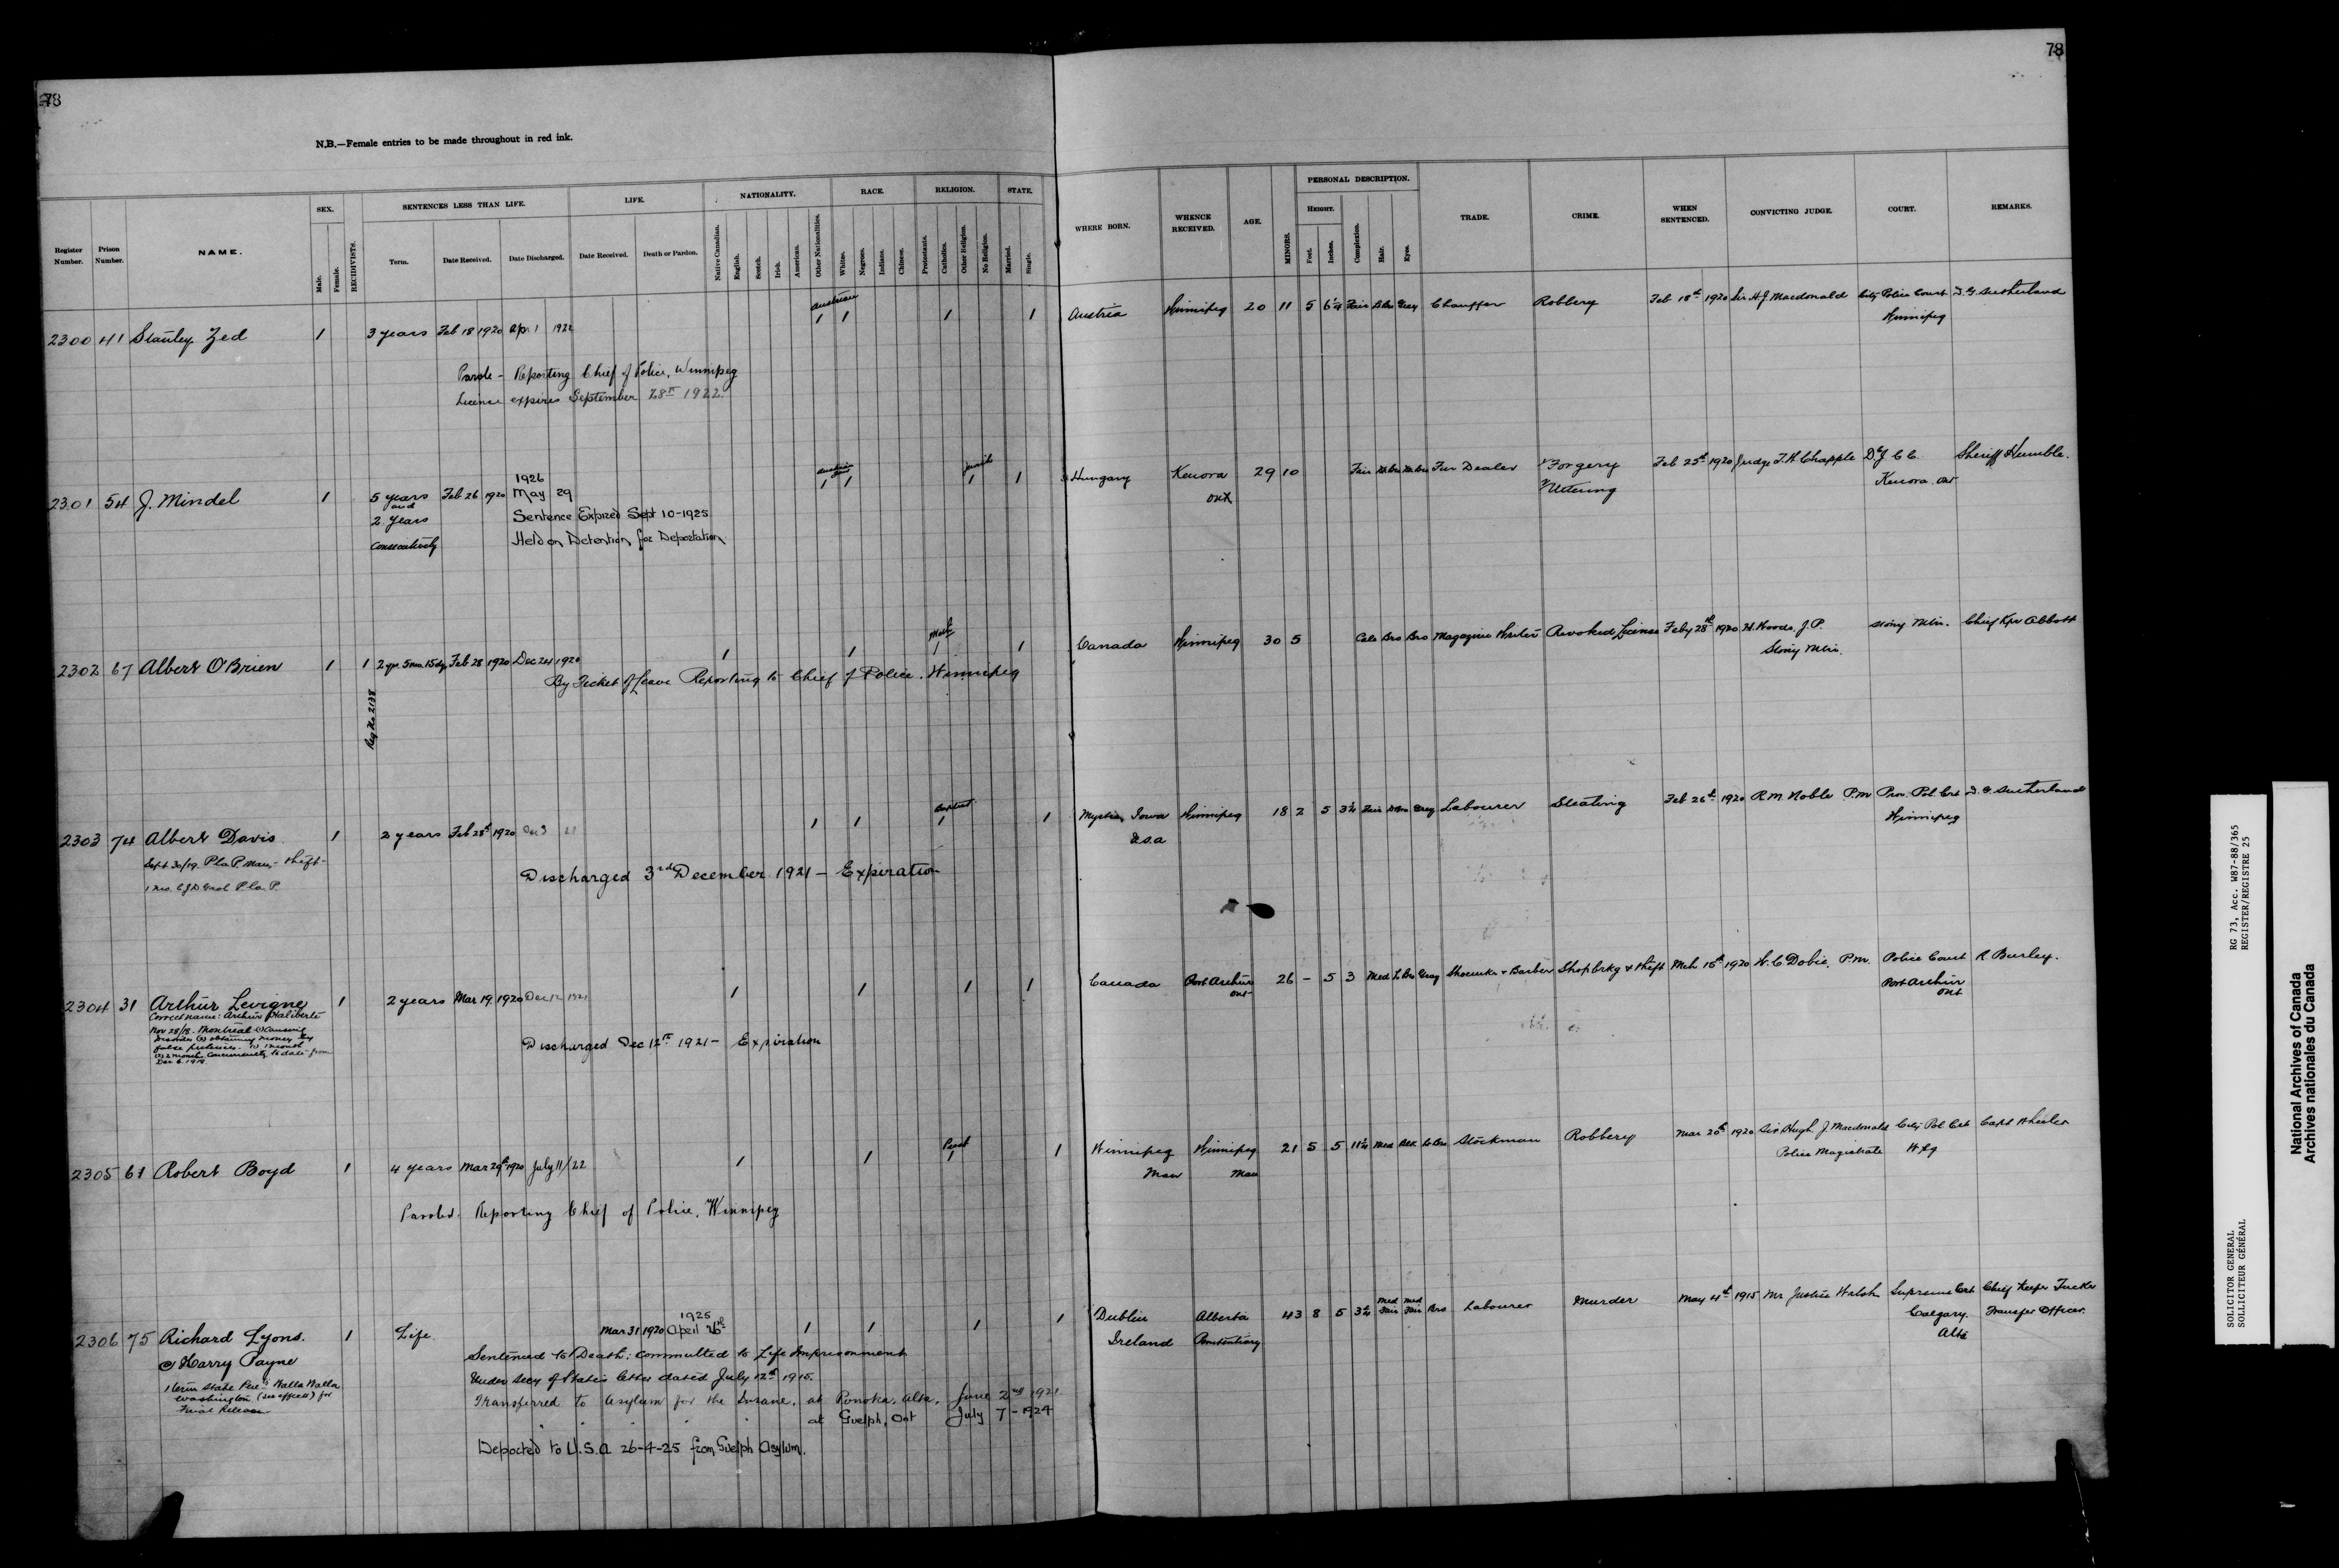 78
78
N.B.—Female entries to be made throughout in red ink.
Register Number.
Prison Number.
NAME.
SEX.
Male.
Female.
RECIDIVISTS.
SENTENCES LESS THAN LIFE.
Term.
Date Received.
Date Discharged.
LIFE.
Date Received.
Death or Pardon.
NATIONALITY.
Native Canadian.
English.
Scotch.
Irish.
American.
Other Nationalities.
RACE.
Whites.
Negroes.
Indians.
Chinese.
RELIGION.
Protestants.
Catholics.
Other Religion.
No Religion.
STATE.
Married.
Single.
WHERE BORN.
WHENCE RECEIVED.
AGE.
MINORS.
PERSONAL DESCRIPTION.
HEIGHT.
Feet.
Inches.
Complexion.
Hair.
Eyes.
TRADE.
CRIME.
WHEN SENTENCED.
CONVICTING JUDGE.
COURT.
REMARKS.
2300 41 Stanley Zed 1 3 years Feb 18 1920 Apr 1 1922 Austrian 1 1 1 1 Austria Winnipeg 20 11 5 6¼ Fair D.Bro Grey Chauffer Robbery Feb 18th 1920 Sir H.J. Macdonald City Police Court D.G. Sutherland
Winnipeg
Parole - Reporting Chief of Police, Winnipeg
Licence expires September 28th 1922.
2301 54 J. Mindel 1 5 years Feb 26 1920 1926 May 29 Austrian 1 1 Jewish 1 1 Hungary Kenora 29 10 Fair Fur Dealer Forgery Feb 25th 1920 Judge T.A. Chapple D.J.C.C. Sheriff Humble.
and
2 years Sentence Expired Sept 10-1925 Ont Uttering Kenora Ont
Consecutively Held on Detention for Deportation
2302 67 Albert O'Brien 1 1 2 yrs. 5 mo. 15 dys Feb 28 1920 Dec 24 1920 1 1 Meth 1 1 Canada Winnipeg 30 5 Bro Bro Magazine Writer Revoked License Feby 28th 1920 J.P. Stony Mtn. Chief Kpr Abbott
By Ticket of Leave Reporting to Chief of Police. Winnipeg Stony Mtn.
Reg No 2138
2303 74 Albert Davis 1 2 years Feb 28th 1920 Dec 3 21 1 1 Baptist 1 1 Mystic, Iowa Winnipeg 18 2 5 3½ Fair D.Bro Grey Labourer Stealing Feb 26th 1920 R.M. Noble P.M. Prov. Pol. Crt D.G. Sutherland
U.S.A Winnipeg
Sept 30/19. P. la P. Man, - theft -
1 mo. C.J.D Gaol P. la P.
Discharged 3rd December 1921 - Expiration
2304 31 Arthur Levigne 1 2 years Mar 19. 1920 Dec 12 1921 1 1 1 1 Canada Port Arthur 26 - 5 3 Med L.Bro Gray Shoemkr + Barber Shopbrkg + theft Mch 15th 1920 W.C. Dobie, P.M. Police Court R Burley.
Ont Port Arthur Ont
Correct name: Arthur Phaliberte
Nov 28/18. Montreal (1) Causing
disorder (2) obtaining money by
false pretences. (1) 1 month
(2) 2 months Concurrently to date from
Dec 6. 1918
Discharged Dec 12th 1921 - Expiration
2305 61 Robert Boyd 1 4 years Mar 29th 1920 July 11/22 1 1 Presb 1 1 Winnipeg Winnipeg 21 5 5 11¼ Med Blk Stockman Robbery Mar 20th 1920 Sir Hugh J. Macdonald City Pol Crt Capt Wheeler
Man Man Police Magistrate Wpg
Paroled. Reporting Chief of Police, Winnipeg
2306 75 Richard Lyons. 1 Life Mar 31 1920 1925 April 26th 1 1 1 1 Dublin Alberta 43 8 5 3¼ Med Fair Med Fair Bro Labourer Murder May 4th 1915 Mr Justice Walsh Supreme Crt Chief Keeper Tucker
Ireland Penitentiary Calgary. Transfer Officer.
Alta
@ Harry Payne
1 term State Pen: Walla Walla
Washington for
Final Release
Sentenced to Death: Commuted to Life Imprisonment
Under Secy of State's letter dated July 12th 1915.
Transferred to Asylum for the Insane, at Ponoka, Alta, June 2nd 1921
" " " " at Guelph, Ont July 7 - 1924
Deported to U.S.A 26-4-25 from Guelph Asylum.
RG 73, Acc. W87-88/365
REGISTER/REGISTRE 25
SOLICITOR GENERAL
SOLLICITEUR GÉNÉRAL
National Archives of Canada
Archives nationales du Canada